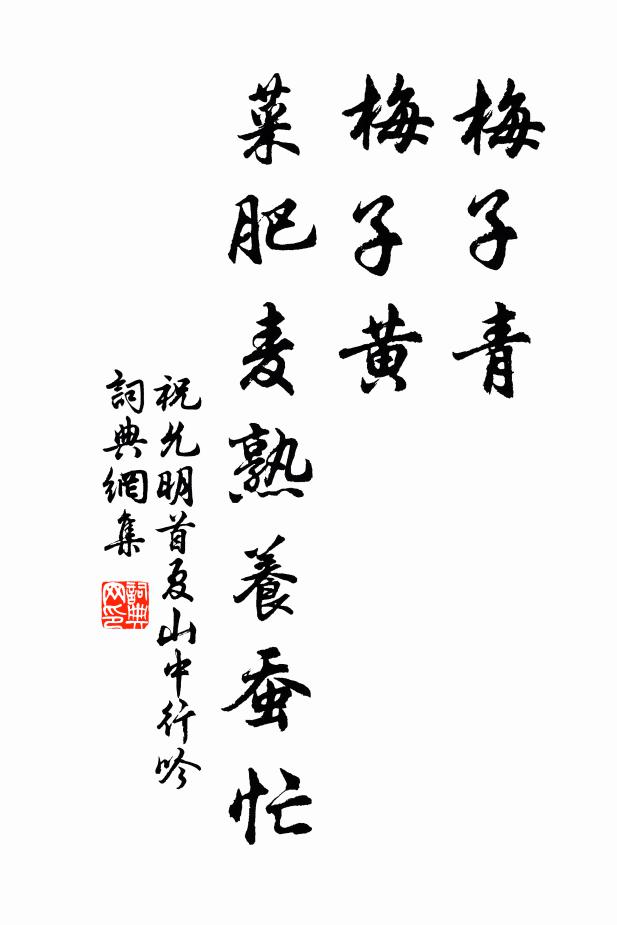 梅子青
梅子黄
菜肥麦熟養蚕忙
祝允明首夏山中行吟
詞典網集
詞典
网印